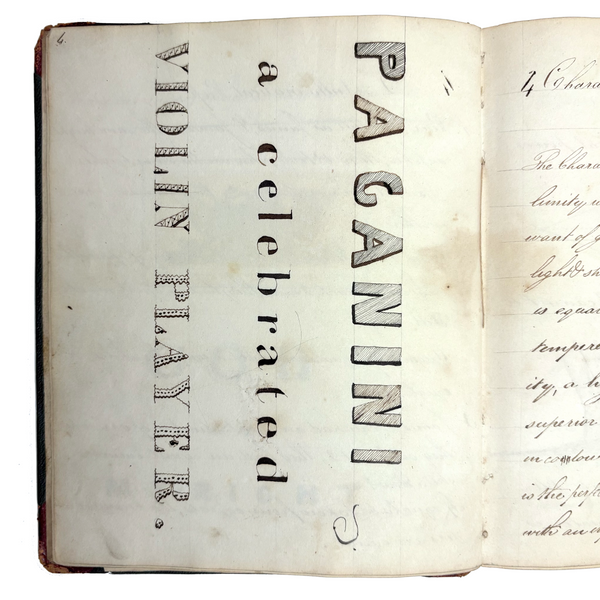 4.
PAGANINI
a celebrated
VIOLIN PLAYER.
4 Chara
The Chara
want of
light & sh
is equa
tempere
ity, a
superior
in colour
is the perf
with an